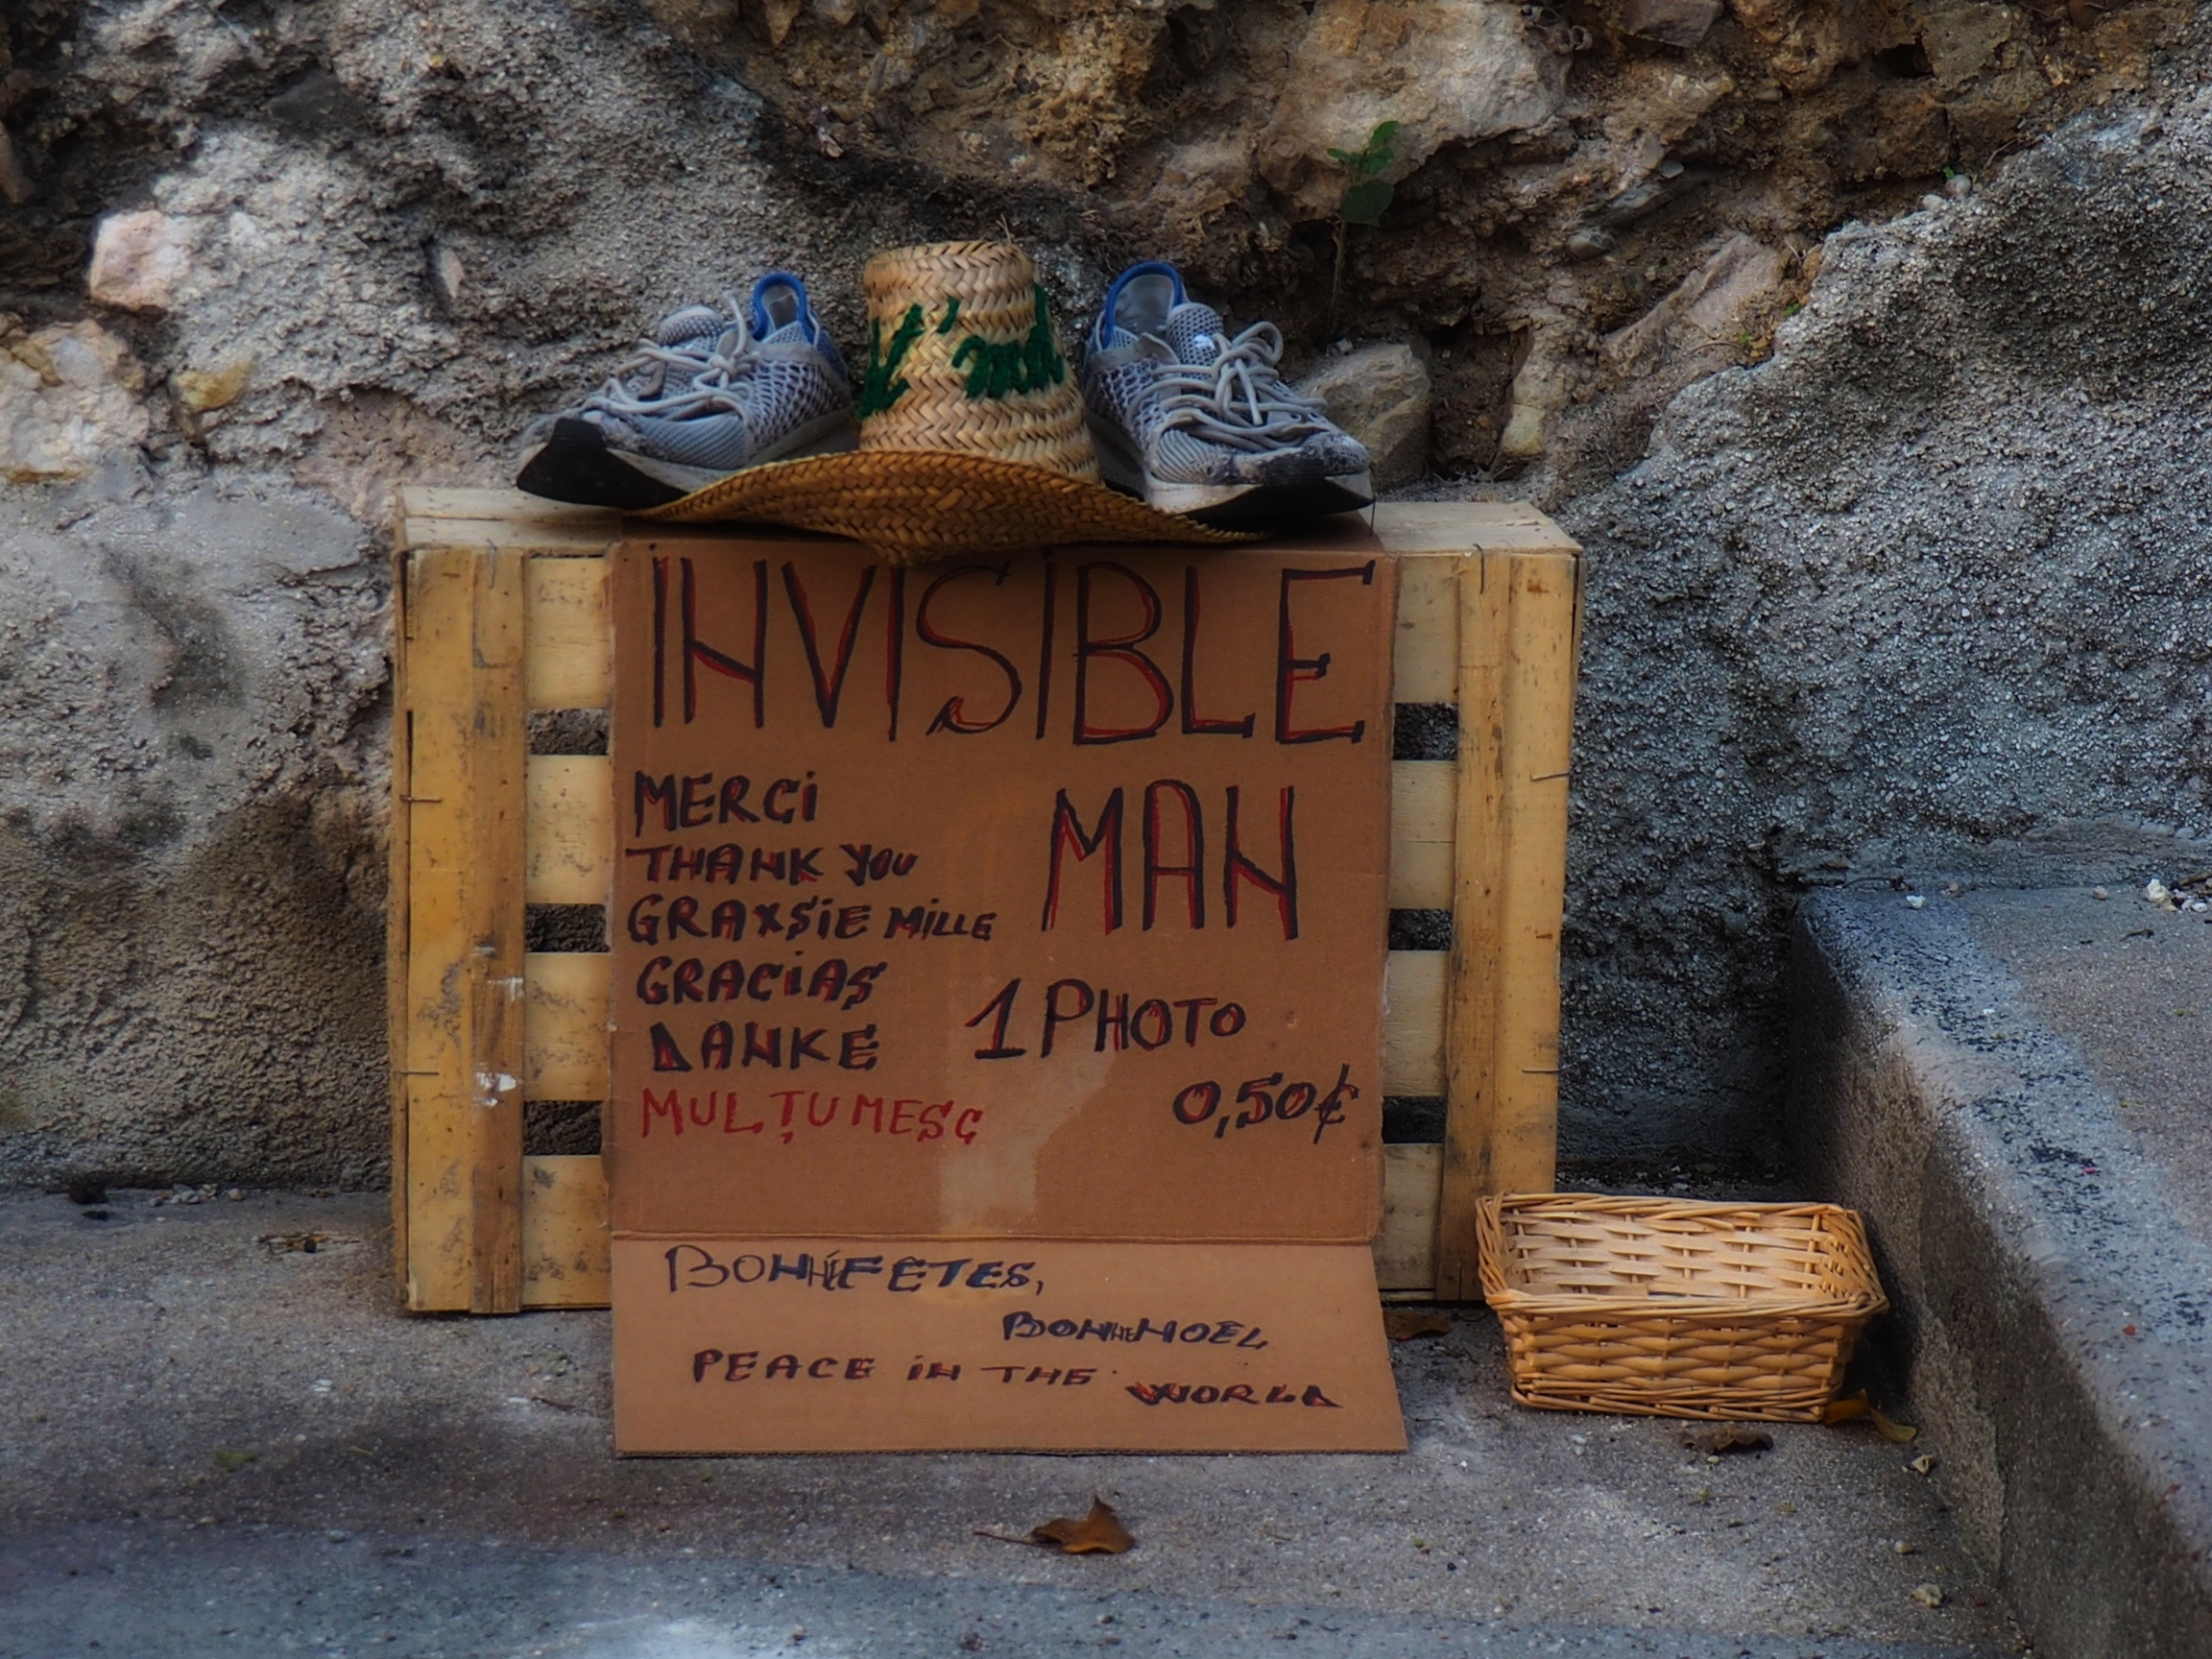 INVISIBLE
MAN
MERCi
THANK YOU
GRAXSiE MiLLE
GRACiAS
DANKE
MULȚUMESC
1 PHOTO
0,50€
BONNE FETES,
BONNE NOËL
PEACE iN THE
WORLD